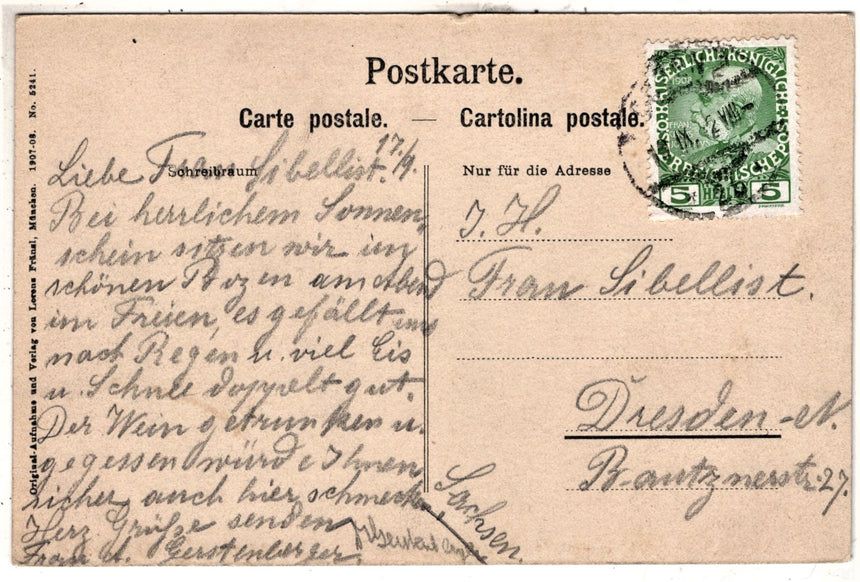 Postkarte.
Carte postale. — Cartolina postale.
Schreibraum
Nur für die Adresse
17./9.
Liebe Frau Sibellist.
Bei herrlichem Sonnen,
schein sitzen wir im
schönen Bozen am abend
im Freien, es gefällt uns
nach Regen u. viel Eis
u. Schnee doppelt gut.
Der Wein getrunken u.
gegessen würde Ihnen
sicher auch hier schmecken
Herz Grüße senden
Frau A. Gerstenberger.
J. H.
Frau Sibellist.
Dresden-N.
Bautznerstr. 27.
Sachsen.
Original-Aufnahme und Verlag von Lorenz Fränzl, München. 1907-08. No. 5241.
5 5